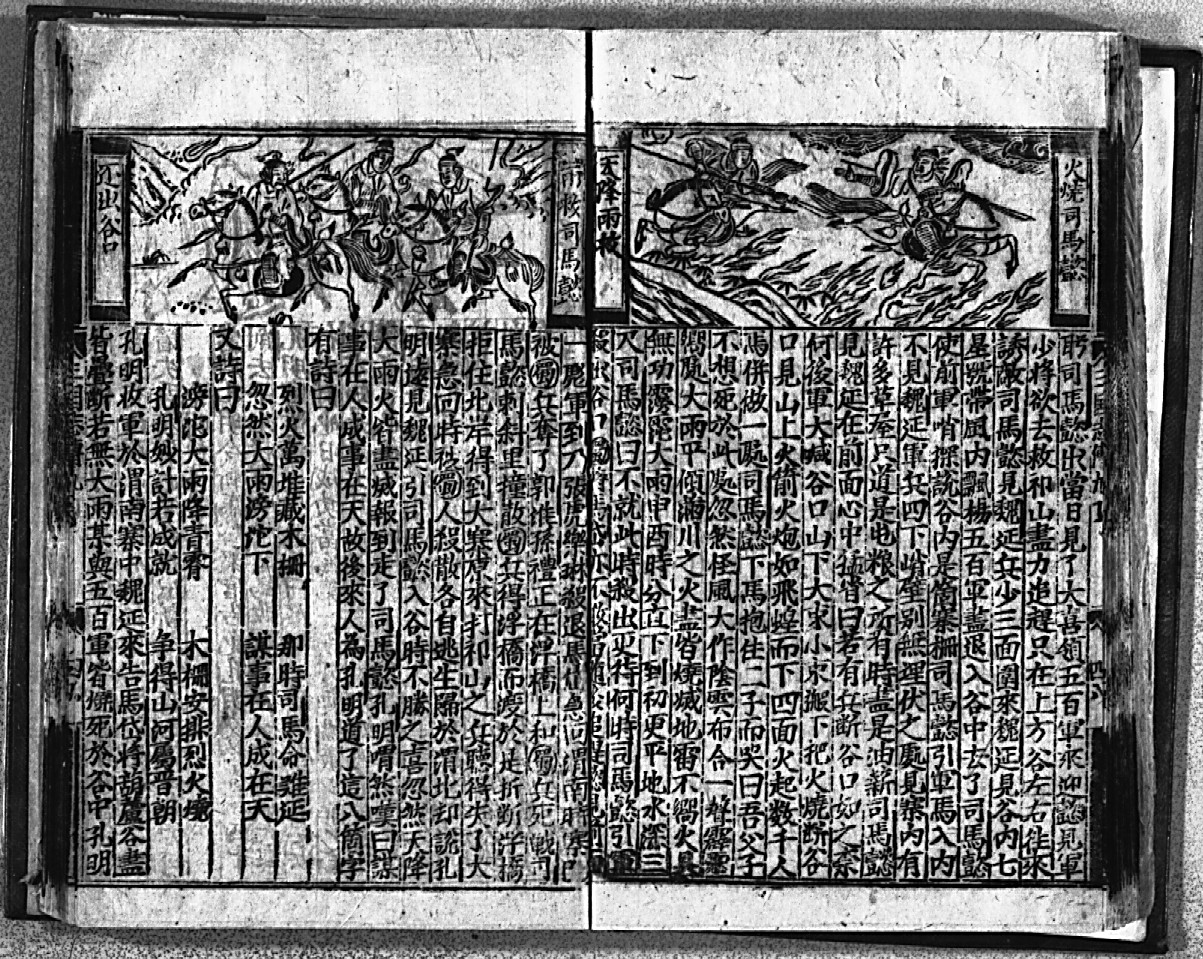 火燒司馬懿
天降雨救
耶司馬懿出當日見了大喜領五百軍來迎懿見軍
少將欲去救祁山盡力追趕只在上方谷左右徃來
誘敵司馬懿見魏延兵少三面圍來魏延見谷內七
星號帶風內飄揚五百軍盡退入谷中去了司馬懿
使前軍哨探說谷內是箇寨柵司馬懿引軍馬入內
不見魏延軍兵四下峭壁別無埋伏之處見寨內有
許多草屋只道是屯粮之所有時盡是油薪司馬懿
見魏延在前面心中猛省曰若有兵斷谷口如之奈
何後軍大喊谷口山下大來小來搬下把火燒斷谷
口見山上火箭火炮如飛蝗而下四面火起数千人
馬併做一處司馬懿下馬抱住二子而哭曰吾父子
不想死於此處忽然怪風大作陰雲布合一聲霹靂
響處大雨平傾滿川之火盡皆燒滅地雷不響火具
無功霎時大雨申酉時分直下到初更平地水深三
尺司馬懿曰不就此時殺出更待何時司馬懿引軍
司馬懿
还出谷口
一彪軍到乃張虎樂琳殺退馬岱急回渭南時寨已
被蜀兵奪了郭淮孫禮正在浮橋上和蜀兵死戰司
馬懿刺斜里撞散蜀兵得浮橋而渡於是折斷浮橋
拒住北岸得到大寨原來打祁山之兵聽得失了大
寨急回時被蜀人殺散各自逃生歸於渭北却說孔
明遠見魏延引司馬懿入谷時不勝之喜忽然天降
大雨火皆盡滅報到走了司馬懿孔明喟然嘆曰謀
事在人成事在天故後來人為孔明道了這八箇字
有詩曰
烈火萬堆藏木柵 那時司馬命難延
忽然大雨滂沱下 謀事在人成在天
又詩曰
滂沱大雨降青霄 木柵安排烈火燒
孔明妙計若成就 争得山河屬晉朝
孔明收軍於渭南寨中魏延來告馬岱將葫蘆谷盡
皆壘断若無大雨某與五百軍皆燒死於谷中孔明